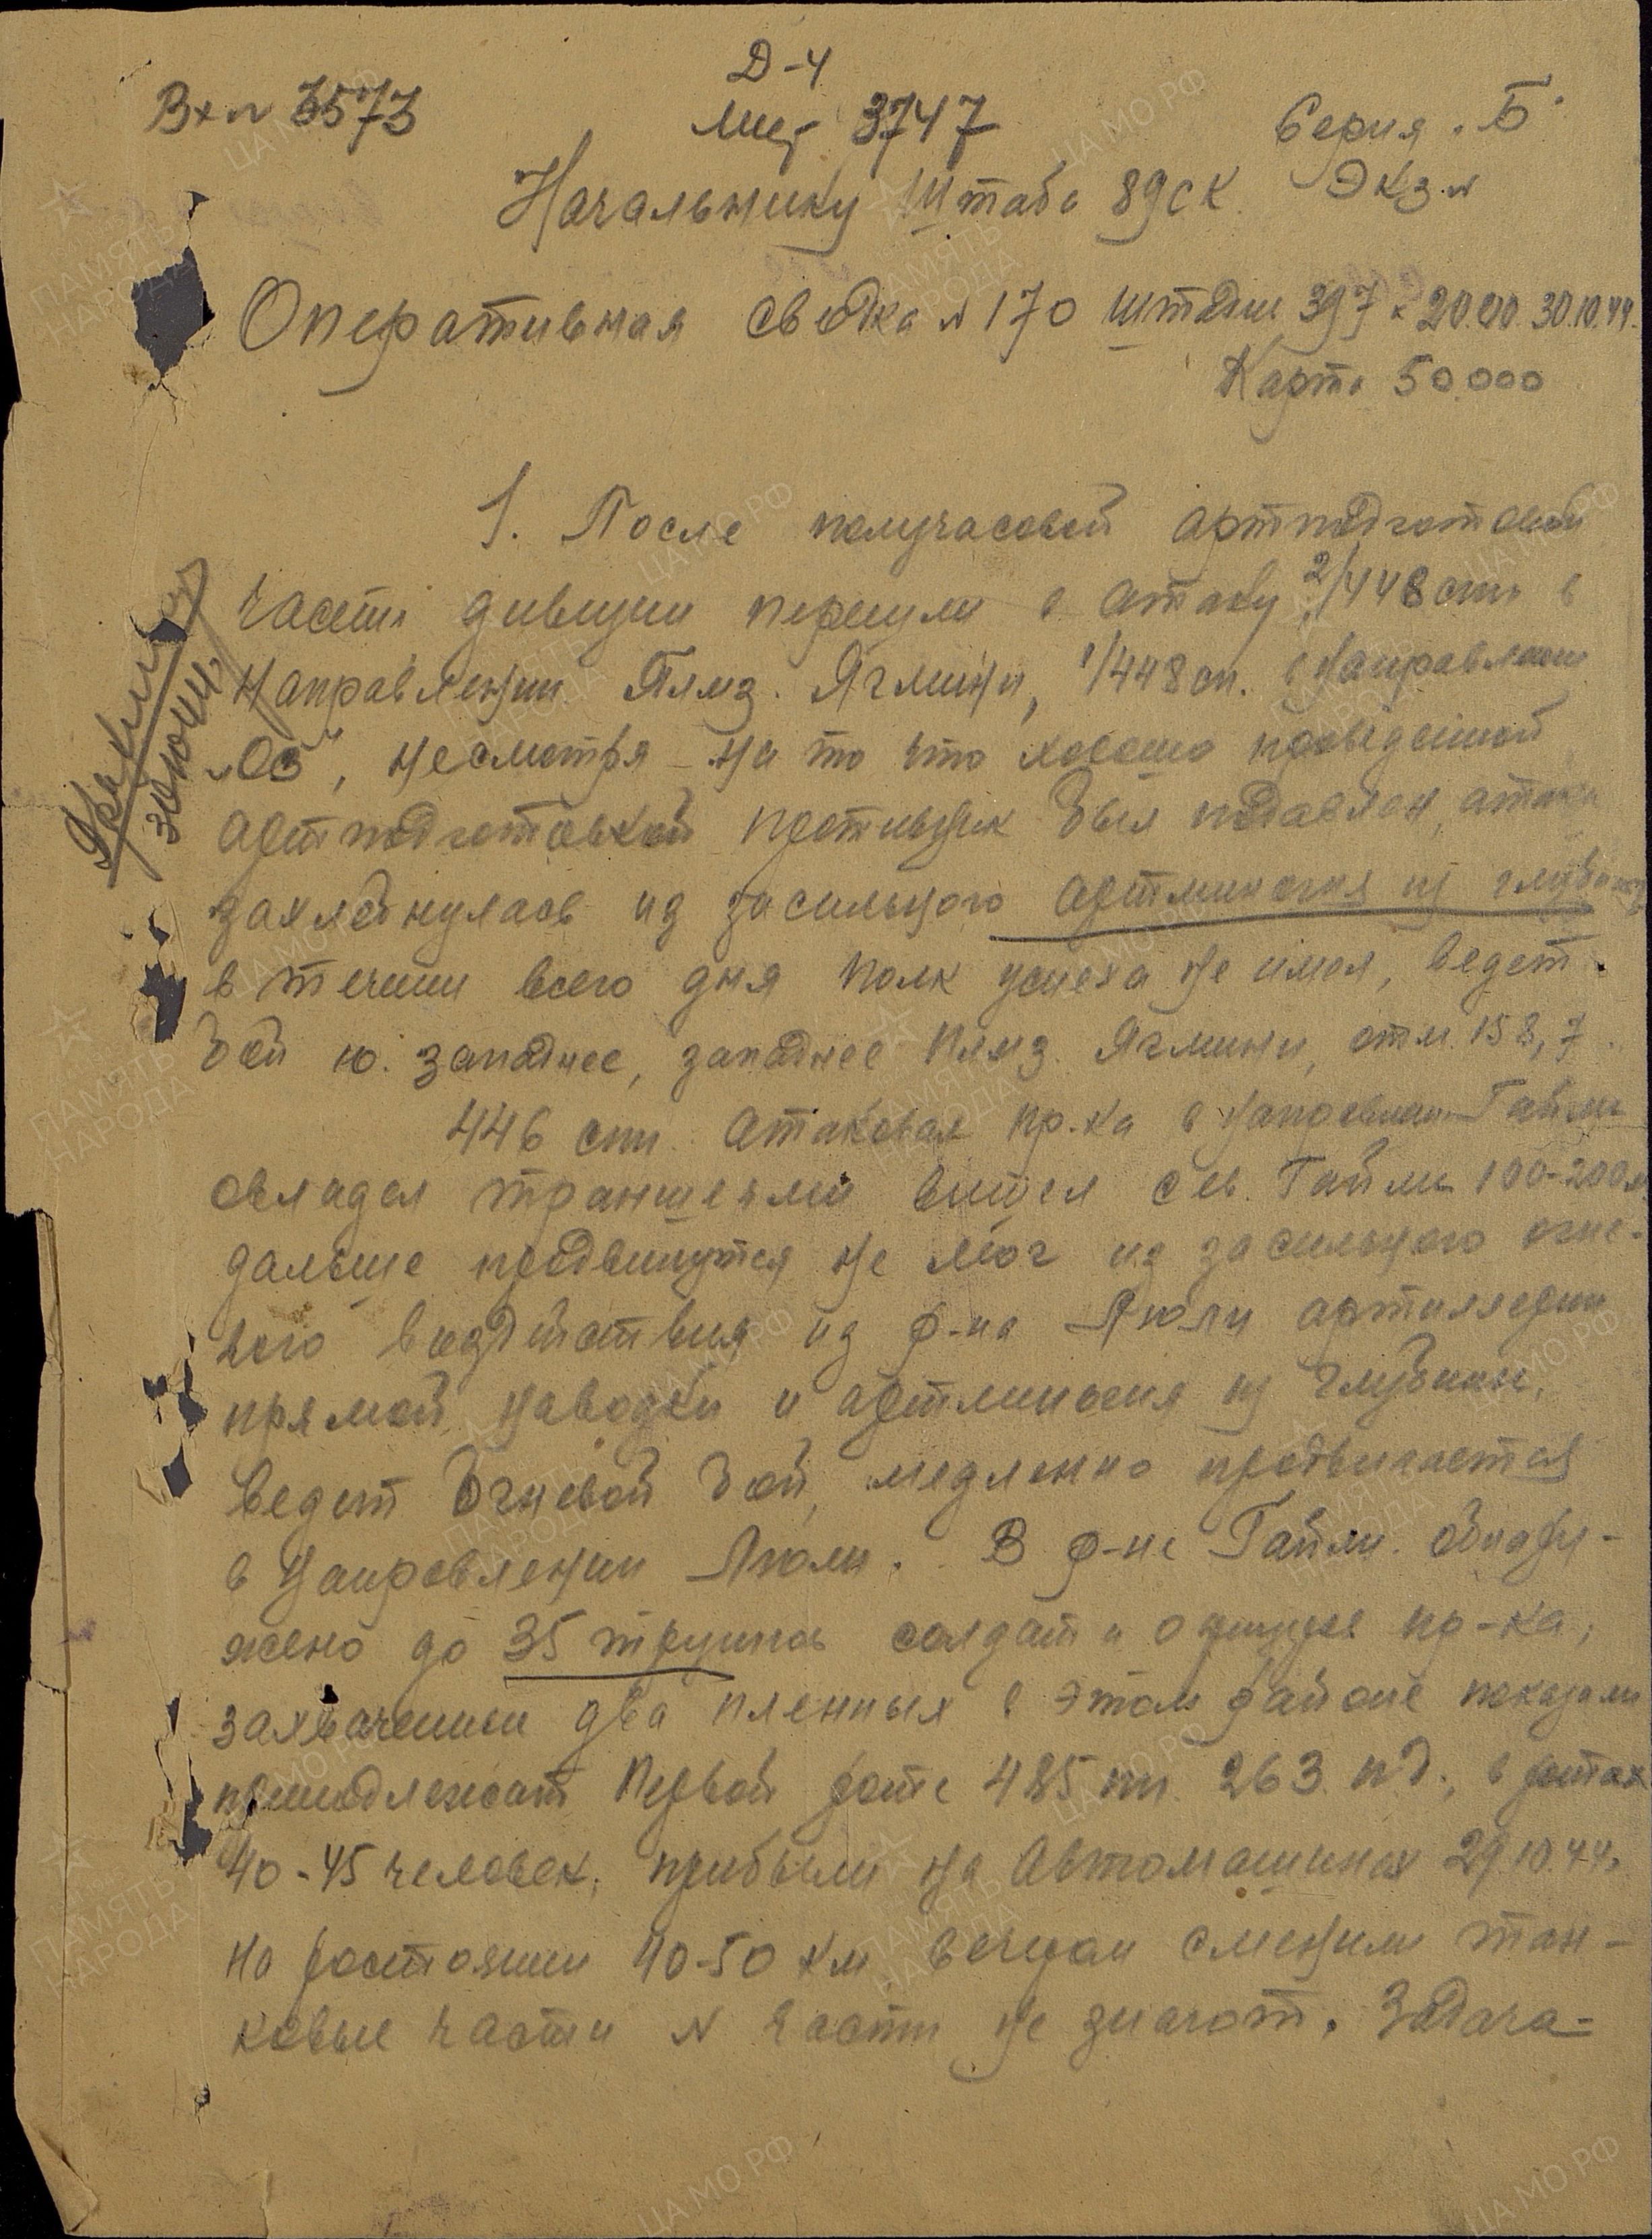 Д-4
Вх № 3573
3747
Серия "Б"
Начальнику Штаба 89 СК.
Экз №
Оперативная сводка № 170 штадив 397 к 20.00 30.10.44.
Карта 50.000
1. После получасовой артподготовки
части дивизии перешли в атаку 2/448 сп в
направлении Плмз. Ягмини, 1/448 сп. в направлении
"Оз", несмотря на то что хорошо проведенной
артподготовкой противник был подавлен, атака
захлебнулась из за сильного артминогня из глубины
в течении всего дня полк успеха не имел, ведет
бой ю. западнее, западнее Плмз. Ягмини, отм. 158,7.
446 сп. атаковал пр-ка в направлении Гайли
овладел траншеями вышел сев. Гайли 100-200 м
дальше продвинутся не мог из за сильного огне-
вого воздействия из р-на Люли артиллерии
прямой наводки и артминогня из глубины,
ведет огневой бой, медленно продвигается
в направлении Люли. В р-не Гайли. обнару-
жено до 35 трупов солдат и офицеров пр-ка,
захвачены два пленных в этом районе показали
принадлежат первой роте 485 пп. 263 пд., в ротах
40-45 человек, прибыли на автомашинах 29.10.44.
на расстоянии 40-50 км вечером сменили тан-
ковые части № части не знают. Задача-